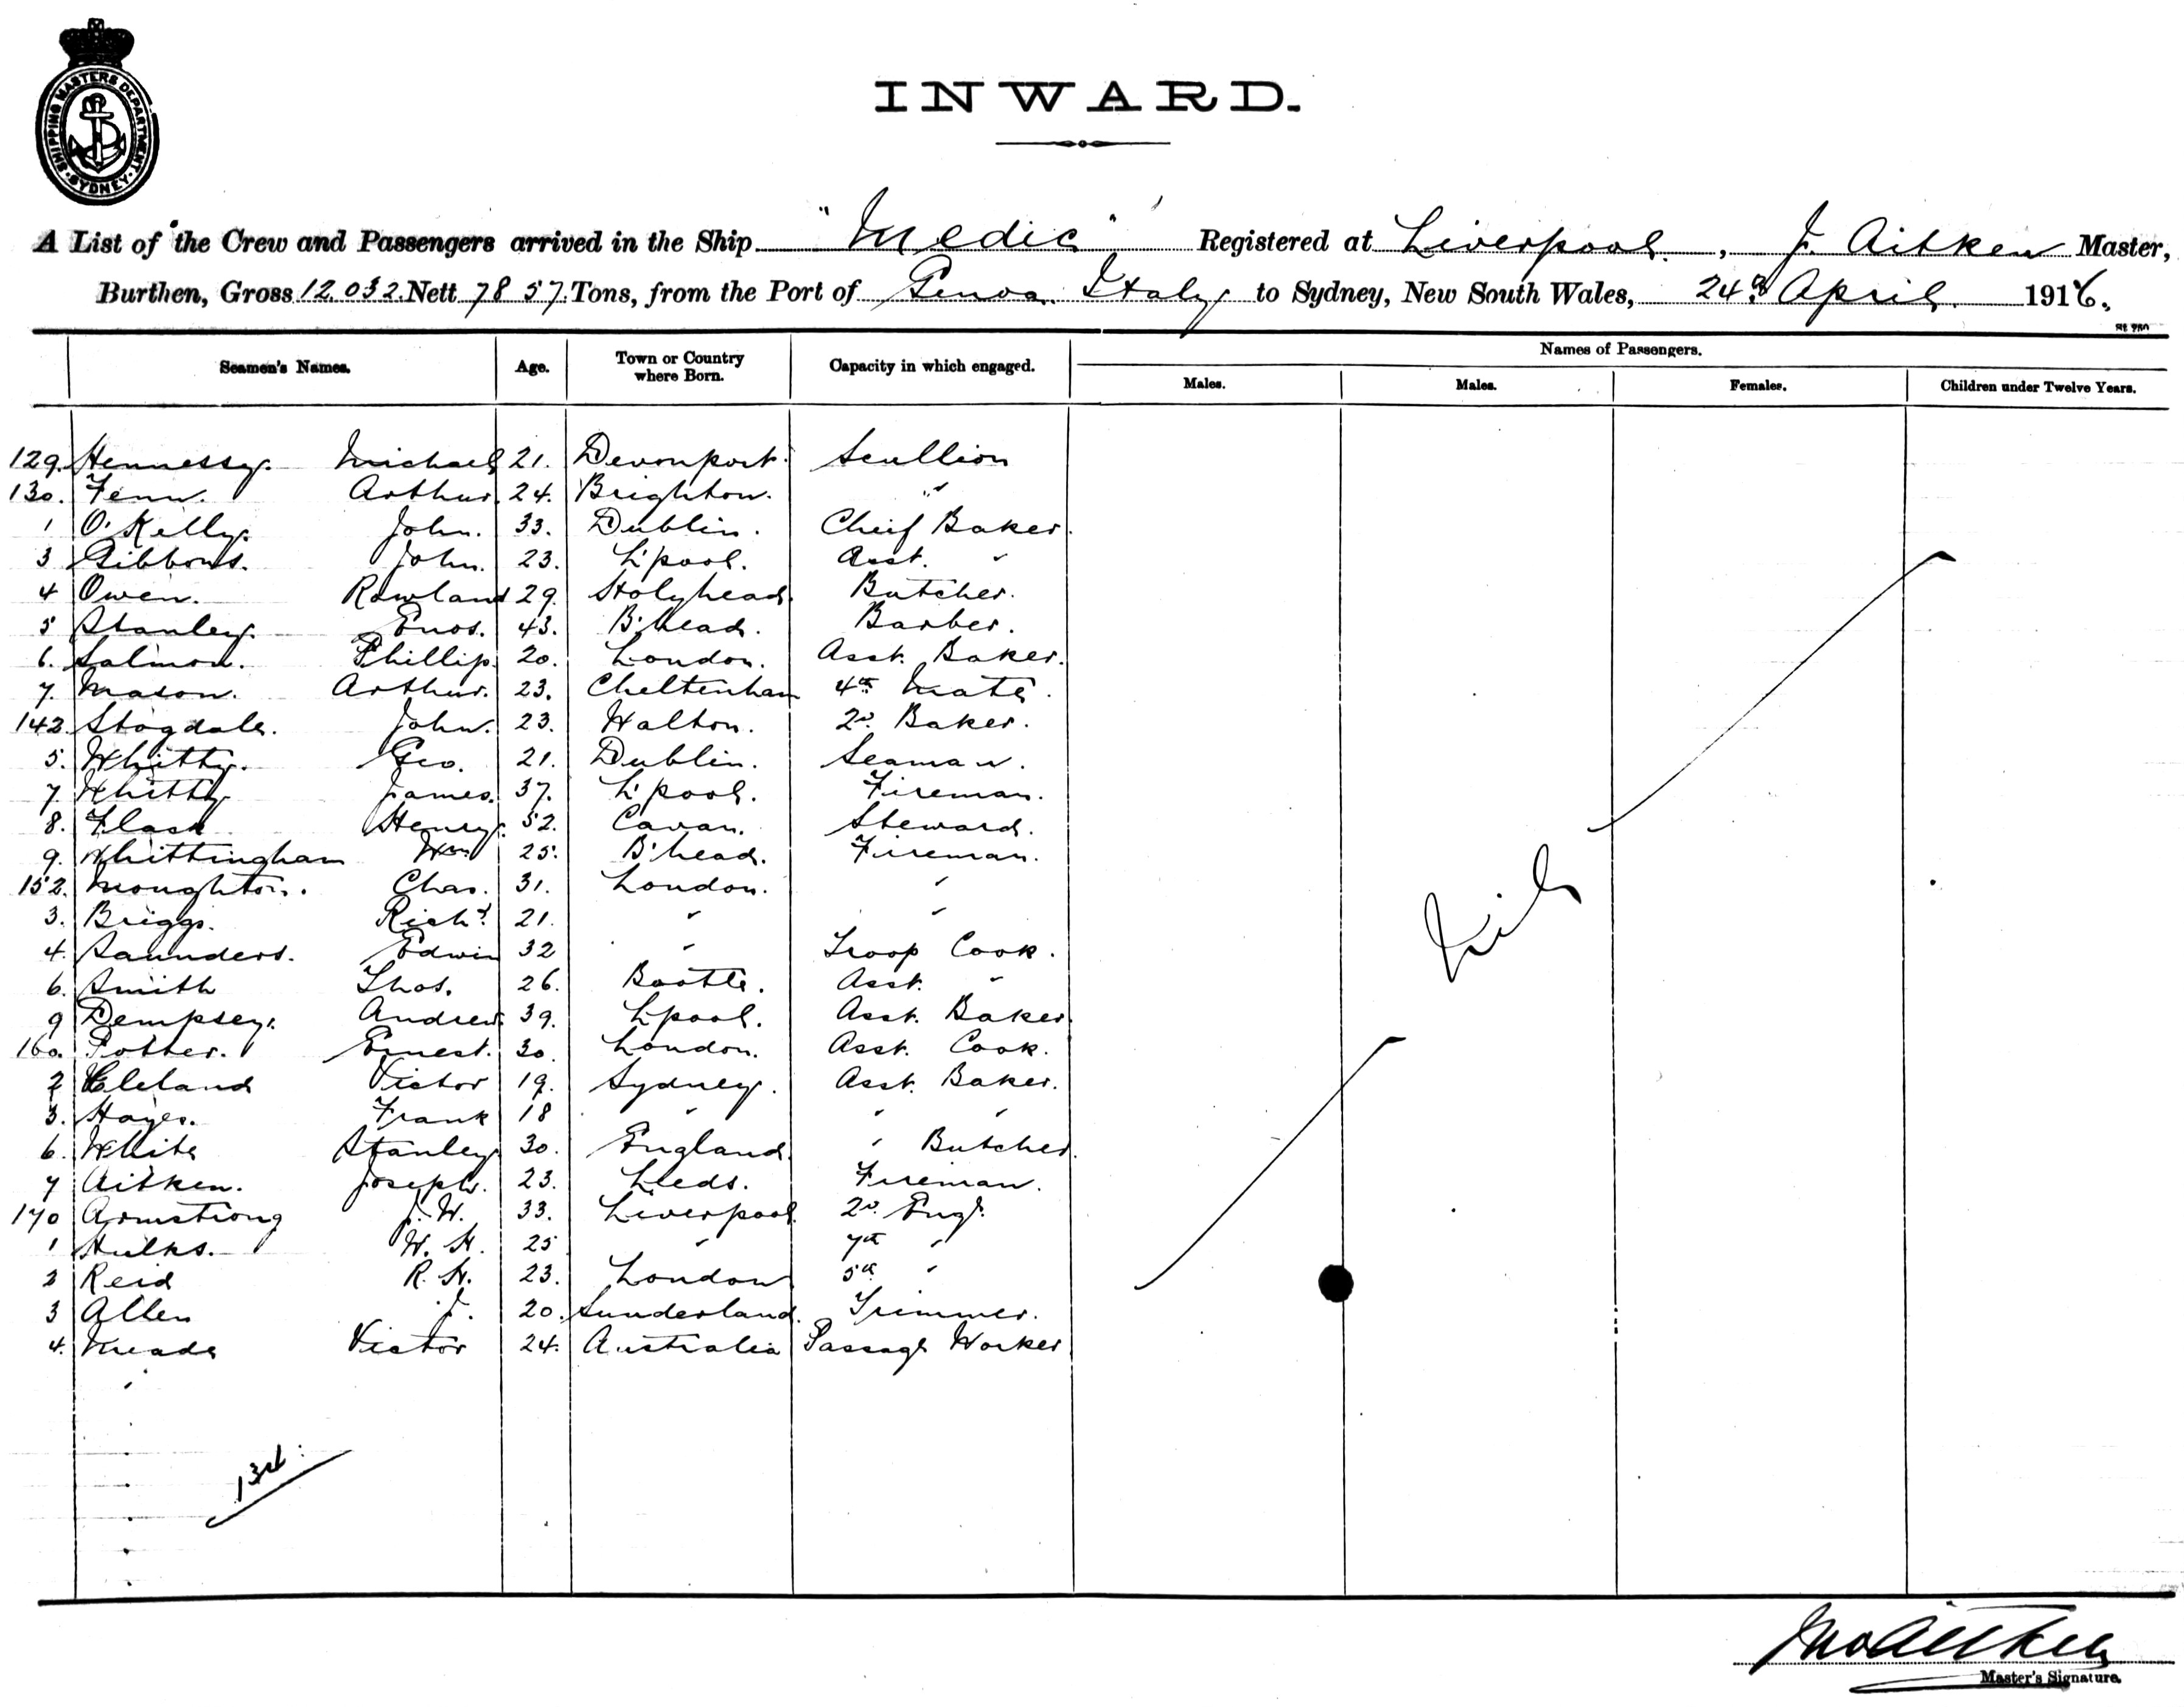 SHIPPING MASTERS DEPARTMENT
SYDNEY
INWARD.
A List of the Crew and Passengers arrived in the Ship "Medic" Registered at Liverpool, J. Aitken Master,
Burthen, Gross 12.032. Nett 7857. Tons, from the Port of Genoa Italy to Sydney, New South Wales, 24th April 1916.
Seamen's Names. Age. Town or Country where Born. Capacity in which engaged. Names of Passengers.
Males. Males. Females. Children under Twelve Years.
129. Hennessy. Michael 21. Devonport. Scullion
130. Fenn. Arthur. 24. Brighton. "
1 O'Kelly. John. 33. Dublin. Cheif Baker.
3 Gibbons. John. 23. L'pool. Asst. "
4 Owen. Rowland 29. Holyhead. Butcher.
5 Stanley. Enos. 43. B'head. Barber.
6. Salmon. Phillip. 20. London. Asst. Baker.
7. Mason. Arthur. 23. Cheltenham 4th Mate.
142. Stogdale. John. 23. Walton. 2d. Baker.
5. Whitty. Geo. 21. Dublin. Seaman.
7. Whitty James. 37. L'pool. Fireman.
8. Flack Henry. 52. Cavan. Steward.
9. Whittingham Wm 25. B'head. Fireman.
152. Moughton. Chas. 31. London. "
3. Briggs. Richd. 21. " "
4. Saunders. Edwin 32 " Troop Cook.
6. Smith Thos. 26. Bootle. Asst. "
9 Dempsey. Andrew 39. L'pool. Asst. Baker.
160. Potter. Ernest. 30. London. Asst. Cook.
2 Cleland Victor 19. Sydney. Asst. Baker.
3. Hayes. Frank 18 " " "
6. White Stanley 30. England. " Butcher.
7 Aitken. Joseph. 23. Leeds. Fireman.
170 Armstrong J. W. 33. Liverpool. 2d. Engr.
1 Hulks. W. H. 25 " 7th "
2 Reid R. H. 23. London 5th "
3 Allen J. 20. Sunderland. Trimmer.
4. Meade Victor 24. Australia Passage Worker
Nil
Master's Signature.